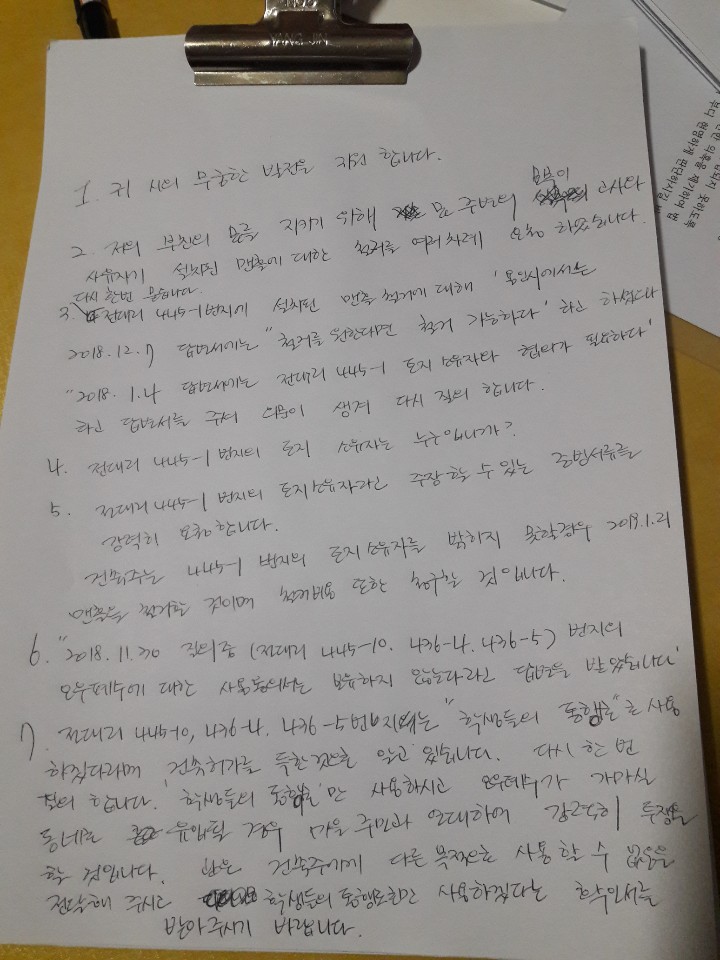 YANG JIN
1. 귀 시의 무궁한 발전을 기원 합니다.
2. 저의 부친의 묘를 지키기 위해 묘 주변의 묘목이 고사와
사유지가 설치된 맨홀에 대한 철거를 여러차례 요청 하였습니다.
다시 한번 묻습니다.
3. 전대리 445-1번지에 설치된 맨홀 철거에 대해 '용인시에서는
2018.12.7 답변서에는 "철거를 원한다면 철거 가능하다' 하신 하셨으나
"2018. 1.4 답변서에는 전대리 445-1 토지 소유자와 협의가 필요하다'
하신 답변서를 주셔 의문이 생겨 다시 질의 합니다.
4. 전대리 445-1 번지의 토지 소유자는 누구입니까?
5. 전대리 445-1 번지의 토지소유자라고 주장할 수 있는 증빙서류를
강력히 요청합니다.
건축주는 445-1 번지의 토지소유자를 밝히지 못할경우 2019.1.21
맨홀을 철거할 것이며 철거비용 또한 청구할 것입니다.
6. "2018.11.30 질의중 (전대리 445-10. 436-4. 436-5) 번지의
오우폐수에 대한 사용동의서는 보유하지 않는다라고 답변을 받았습니다'
7. 전대리 445-10, 436-4. 436-5번지에는 "학생들의 통행로"로 사용
하겠다라며 건축허가를 득한것으로 알고 있습니다. 다시 한 번
질의 합니다. '학생들의 통행로'만 사용하시고 오우폐수가 가마실
동네로 유입될 경우 마을 주민과 연대하여 강력히 투쟁을
할 것입니다. 또한 건축주에게 다른 목적으로 사용 할 수 없음을
전달해 주시고 학생들의 통행로로만 사용하겠다는 확인서를
받아주시기 바랍니다.
의혹을 제기하여
현명하게 판단하시길